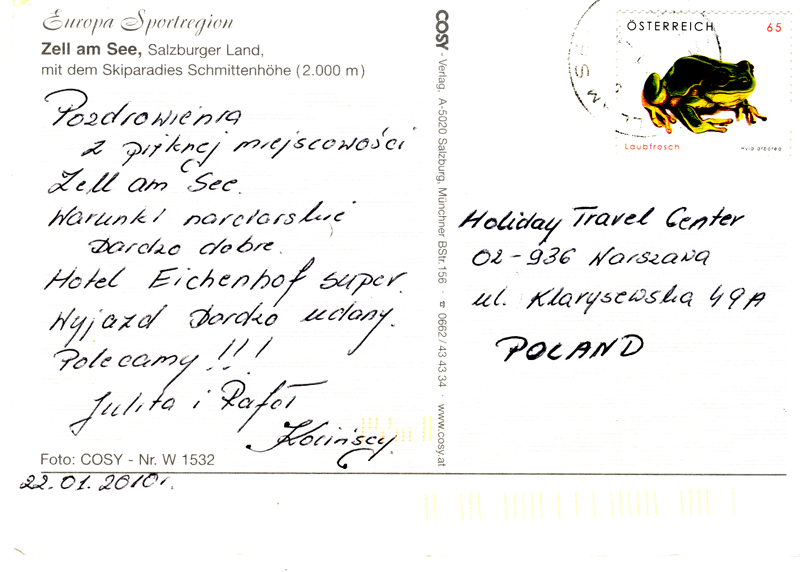 Europa Sportregion
Zell am See, Salzburger Land,
mit dem Skiparadies Schmittenhöhe (2.000 m)
Pozdrowienia
z pięknej miejscowości
Zell am See.
Warunki narciarskie
bardzo dobre.
Hotel Eichenhof super.
Wyjazd bardzo udany.
Polecamy !!!
Julita i Rafał
Kolińscy.
Foto: COSY - Nr. W 1532
22.01.2010r.
COSY - Verlag, A-5020 Salzburg, Münchner BStr. 156 · ☎ 0662/43 43 34 · www.cosy.at
ÖSTERREICH 65
Laubfrosch Hyla arborea
Holiday Travel Center
02-936 Warszawa
ul. Klarysewska 49A
POLAND